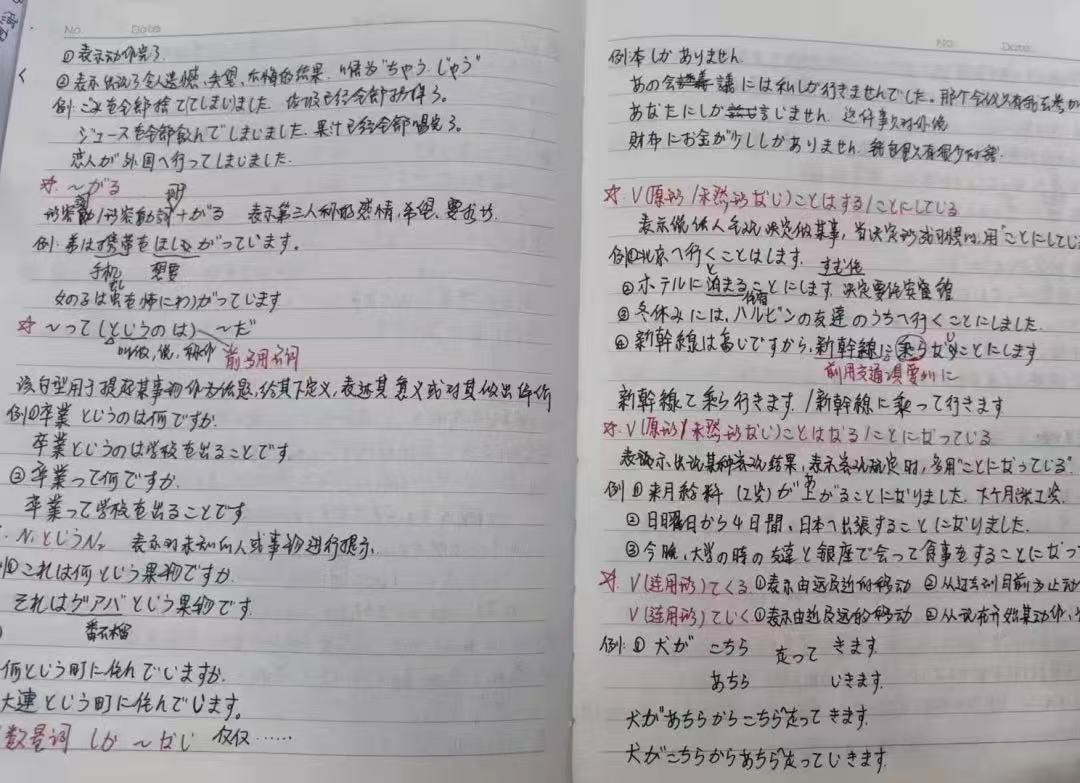 No. Date
①表示动作完了
②表示出现了令人遗憾、失望、后悔的结果. 口语为"ちゃう じゃう"
例:ごみを全部捨ててしまいました. 垃圾已经全部扔掉了。
ジュースを全部飲んでしまいました. 果汁已经全部喝完了。
恋人が外国へ行ってしまいました.
☆. ～がる
形容動/形容動詞+がる 表示第三人称的感情,希望、要求等.
例:弟は携帯をほしがっています。
手机 想要
女のるは虫を怖にわがっています
☆ ～って(というのは)～だ
叫做,说,称作 前多用名词
该句型用于提起某事物作为话题,给其下定义,表述其意义或对其做出评价
例①卒業というのは何ですか.
卒業というのは学校を出ることです
②卒業って何ですか.
卒業って学校を出ることです
N₁というN₂ 表示对未知的人或事物进行提示.
①これは何という果物ですか.
それはグアバという果物です.
番石榴
何という町に住んでいますか.
大連という町に住んでいます。
数量词 しか ～ない 仅仅……
No. Date
例:本しかありません
あの会議には私しか行きませんでした。那个会议只有我去参
あなたにしか言いません. 这件事只对你说
財布にお金が少ししかありません. 钱包里只有很少的钱.
☆. V(原形/未然形ない)ことはする/ことにしている
表示说话人主观决定做某事,当决定形成习惯时,用"ことにしてい
例①北京へ行くことはします.
②ホテルに泊まることにします. 决定要住宾馆
③冬休みには,ハルビンの友達のうちへ行くことにしました.
④新幹線は高いですから,新幹線に乗らないことにします
前用交通项要加に
新幹線て乗ら行きます./新幹線に乗って行きます
☆. V(原形/未然形ない)ことはなる/ことになっている
表示出现某种客观结果,表示客观规定时,多用"ことになっている"
例①来月給料(工资)が上がることになりました. 下个月涨工资.
②日曜日から4日間、日本へ出張することになりました.
③今晩、大学の時の友達と銀座で会って食事をすることになっ
☆. V(连用形)てくる ①表示由远及近的移动 ②从过去到目前为止动
V(连用形)ていく ①表示由近及远的移动 ②从现在开始某动作,
例:①犬が こちら 走って きます.
あちら いきます.
犬があちらからこちらへ走ってきます.
犬がこちらからあちらへ走っていきます.